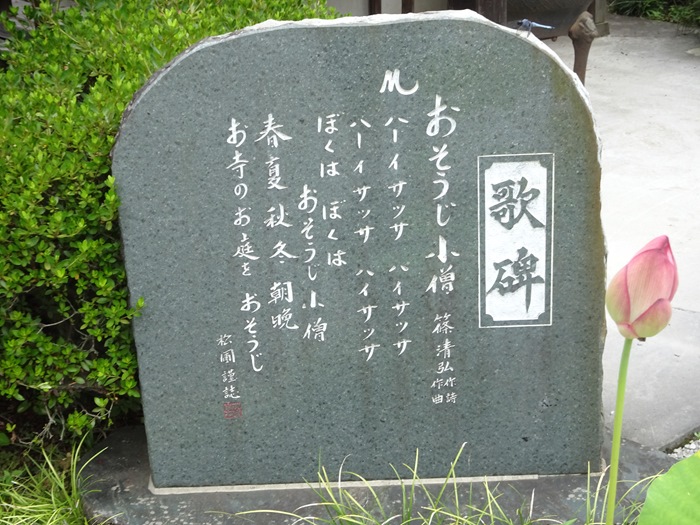 歌碑
おそうじ小僧 篠清弘 作詩 作曲
ハーイサッサ ハイサッサ
ハーイサッサ ハイサッサ
ぼくは ぼくは
おそうじ小僧
春夏秋冬 朝晩
お寺のお庭を おそうじ
謹誌